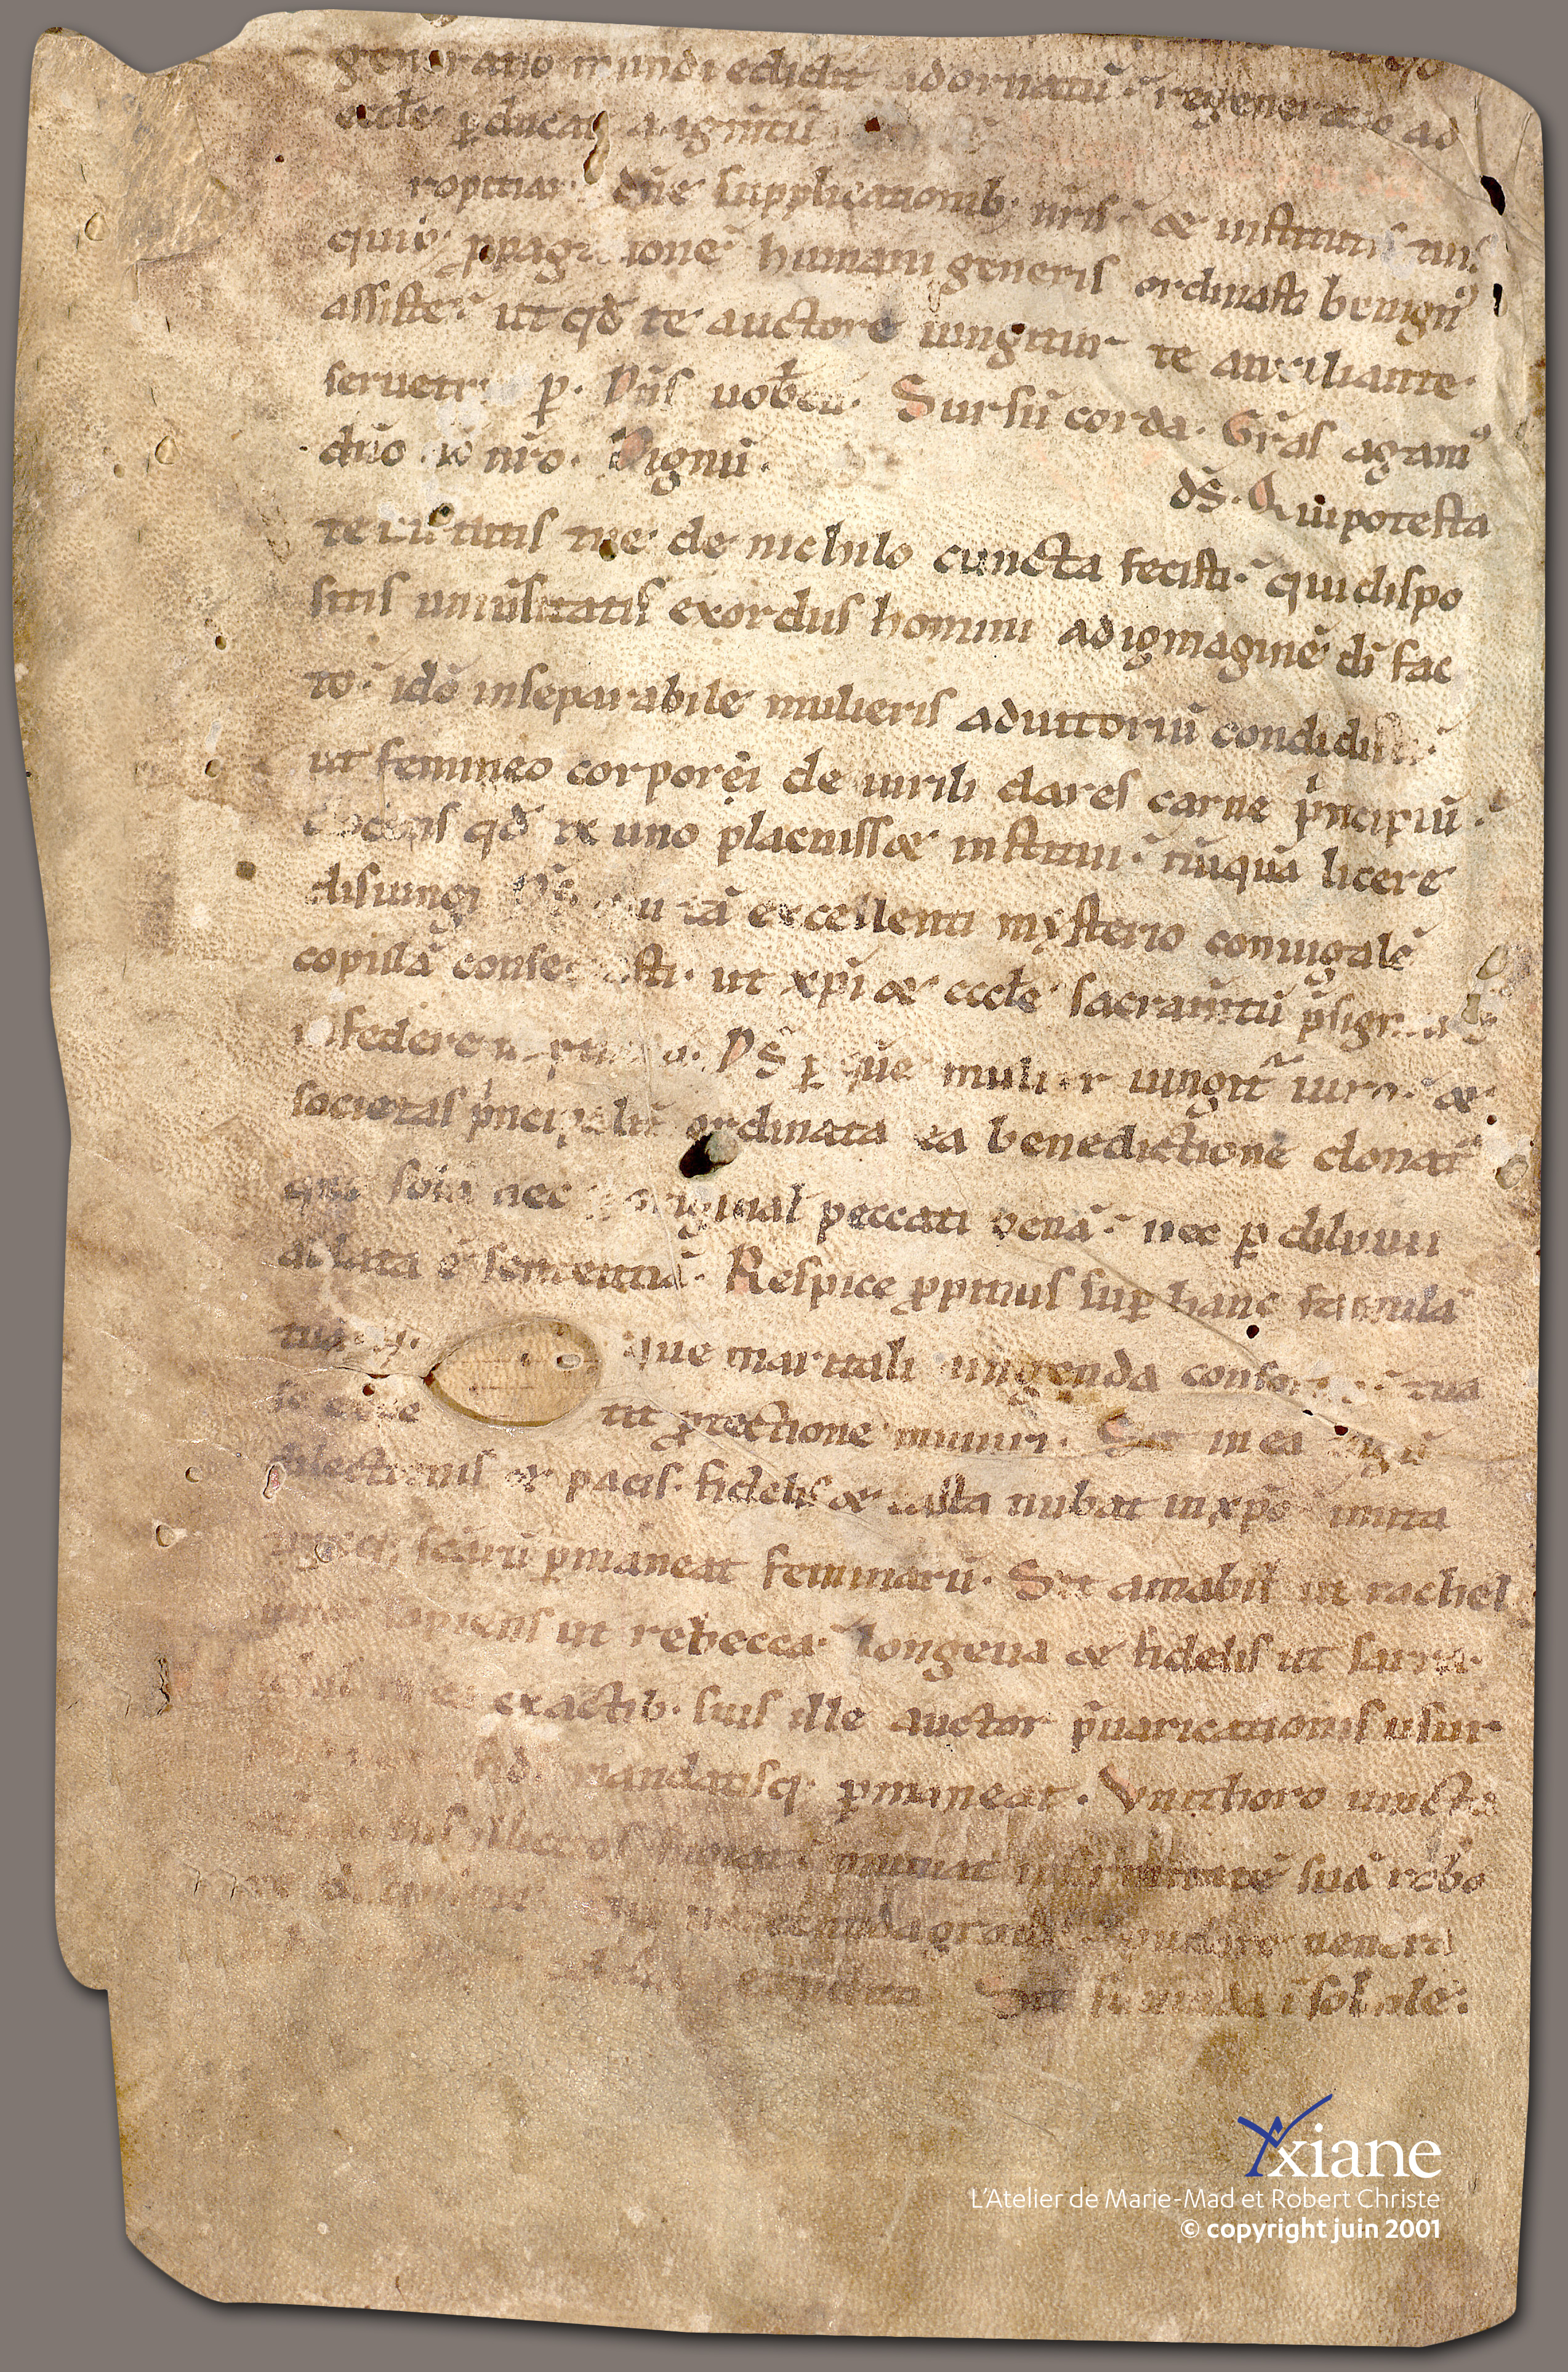 generatio mundi edidit adornatū. regeneratio ad
eccłe ꝑducat augm̄tū
ropitiar dn̄e supplicationib; nr̄is. & institutis tuis
quib; ꝓpagationē humani generis ordinasti benignꝰ
assiste. ut qđ te auctore iungitur te auxiliante
seruetur ꝑ. Dn̄s uobcū. Sursū corda. Gr̄as agamꝰ
dn̄o do nr̄o. Dignū.
dS̄. Qui potesta
te uirtutis tue de nichilo cuncta fecisti. qui dispo
sitis uniūsitatis exordiis homini ad igmaginē di fac
to. idō inseparabile mulieris adiutoriū condidisti
ut femineo corpori de uirili dares carne pͥncipiū.
docens qđ ex uno placuiss& institui. nūquā licere
disiungi DS̄ qui tā excellenti mysterio coniugalē
copulā consecrasti. ut xp̄i & eccłe sacram̄tū p̄sign
in federe DS̄ ꝑ quē mulier iungit̄ uiro. &
societas pͥncipalit̄ ordinata ea benedictione donat̄
que sola nec ꝑ original peccati penā. nec ꝑ diluuii
ablata ē sententiā. Respice ꝓpitius suꝑ hanc famulā
tuā que maritali iungenda consor tua
se expe tit ꝓtectione muniri. Sit in ea iugū
dilectionis & pacis. fidelis & casta nubat in xp̄o imita
scārū ꝑmaneat feminarū. Sit amabił ut rachel
uiro sapiens ut rebecca. longeua & fidelis ut sarra.
ex actib. suis ille auctor p̄uaricationis usur
fid mandatisq; ꝑmaneat. Vni thoro iuncta
muniat infirmitatē suā robo
uerecundia grauis pudore uenera
erudita Sit fecunda ī sobole.
Axiane
L'Atelier de Marie-Mad et Robert Christe
© copyright juin 2001